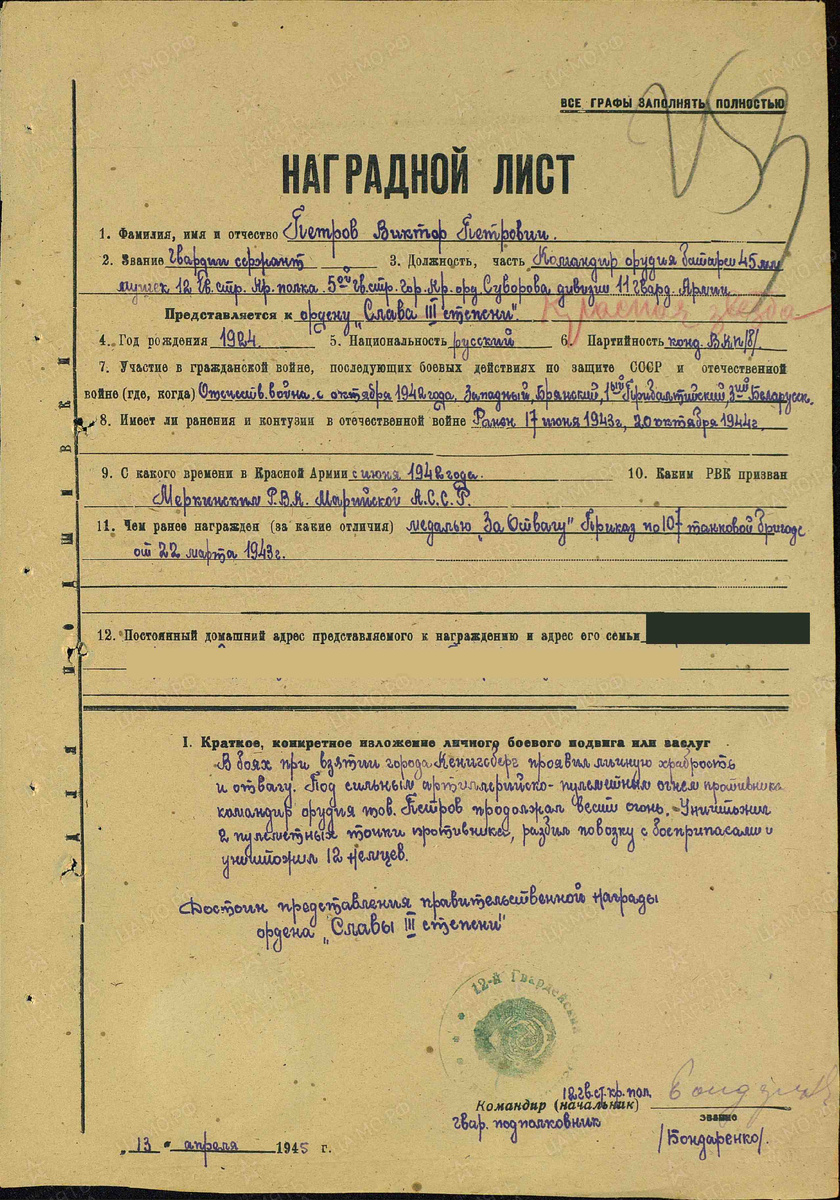 ВСЕ ГРАФЫ ЗАПОЛНЯТЬ ПОЛНОСТЬЮ
НАГРАДНОЙ ЛИСТ
1. Фамилия, имя и отчество Петров Виктор Петрович.
2. Звание Гвардии сержант 3. Должность, часть Командир орудия батареи 45 мм
пушек 12 Гв. стр. Кр. полка. 5ой Гв. стр. Гор. Кр. орд Суворова дивизии 11 Гвард. Армии
Представляется к ордену "Слава III степени". Красная звезда
4. Год рождения 1924. 5. Национальность русский 6. Партийность конд. ВКП/б/.
7. Участие в гражданской войне, последующих боевых действиях по защите СССР и отечественной
войне (где, когда) Отечеств. война с октября 1942 года. Западный, Брянский, 1ый Прибалтийский, 3ий Беларусск.
8. Имеет ли ранения и контузии в отечественной войне Ранен 17 июня 1943г, 20 октября 1944г.
9. С какого времени в Красной Армии с июня 1942 года. 10. Каким РВК призван
Меркинским Р.В.К. Марийской А.С.С.Р.
11. Чем ранее награжден (за какие отличия) медалью "За Отвагу" Приказ по 107 танковой бригаде
от 22 марта 1943г.
12. Постоянный домашний адрес представляемого к награждению и адрес его семьи
I. Краткое, конкретное изложение личного боевого подвига или заслуг
В боях при взятии города Кенигсберг проявил личную храбрость
и отвагу. Под сильным артиллерийско-пулеметным огнем противника
командир орудия тов. Петров продолжал вести огонь. Уничтожил
2 пулеметных точки противника, разбил повозку с боеприпасами и
уничтожил 12 немцев.
Достоин представления правительственной награды
ордена "Славы III степени"
12-й Гвардейский
12 гв. ст. кр. пол.
Командир (начальник)
звание
гвар. подполковник
/Бондаренко/.
"13" апреля 1945 г.